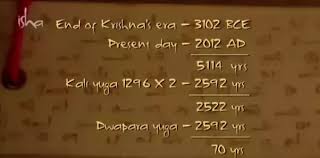 isha
End of Krishna's era - 3102 BCE
Present day - 2012 AD
5114 yrs
Kali yuga 1296 X 2 - 2592 yrs
2522 yrs
Dwapara yuga - 2592 yrs
70 yrs